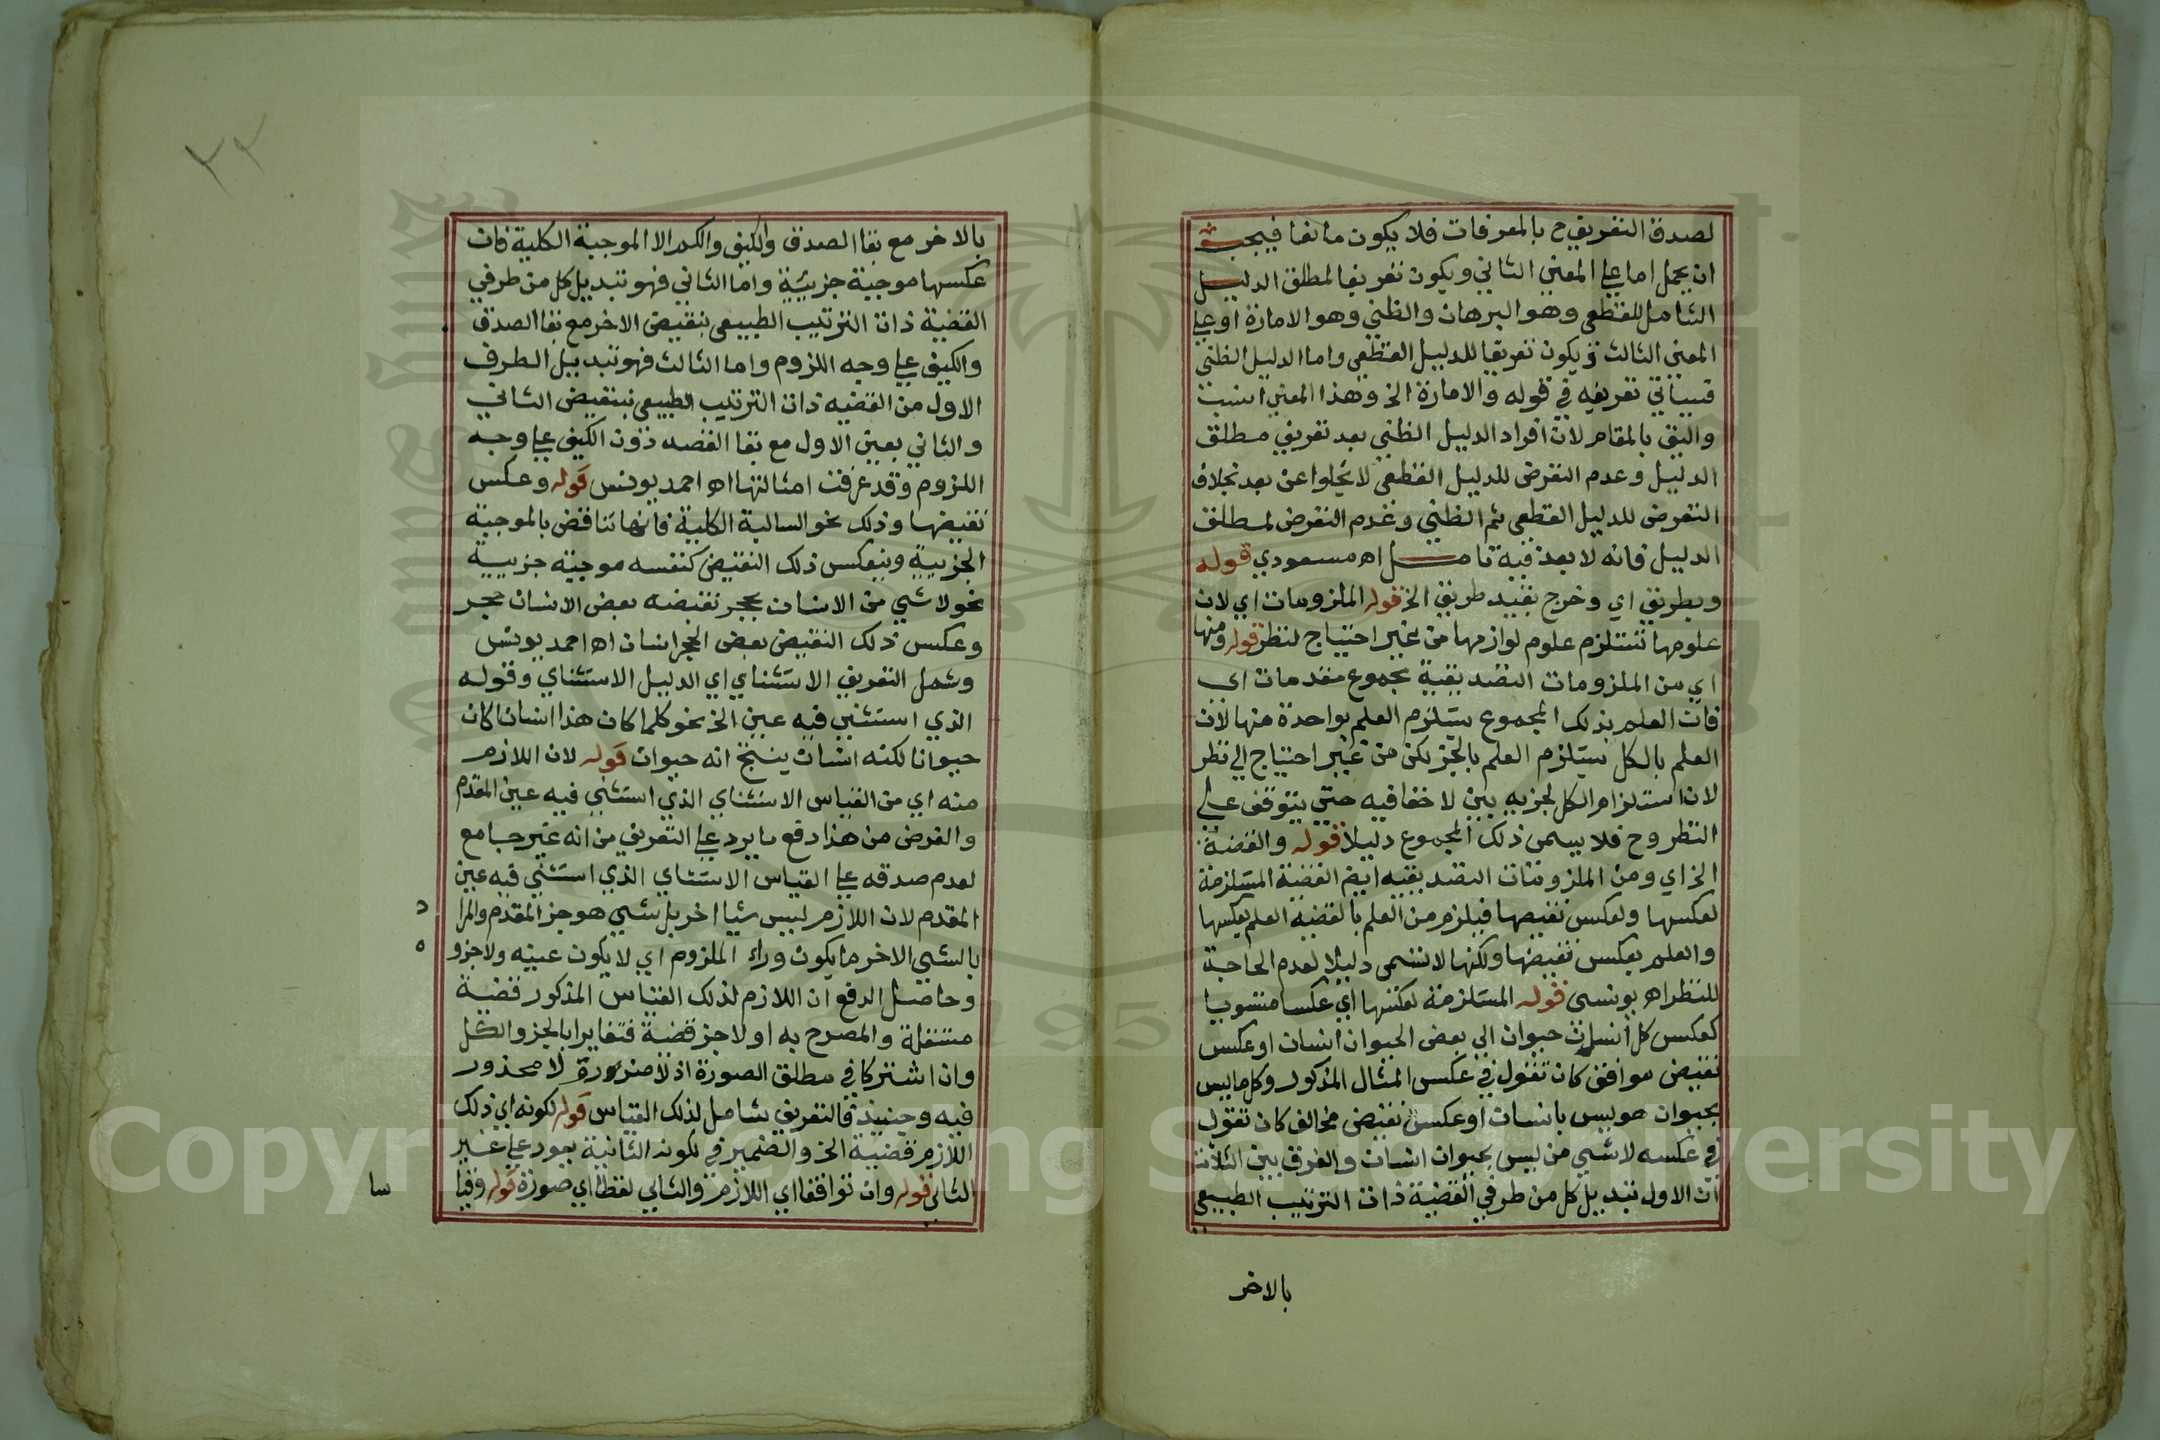 لصدق التعريف ح بالمعرفات فلا يكون مانعا فيجب
ان يحمل اما علي المعني الثاني ويكون تعريفا لمطلق الدليل
الشامل للقطعي وهو البرهان والظني وهو الامارة او علي
المعني الثالث فيكون تعريفا للدليل القطعي واما الدليل الظني
فسياتي تعريفه في قوله والامارة الخ وهذا المعني انسب
واليق بالمقام لان افراد الدليل الظني بعد تعريف مطلق
الدليل وعدم التعرض للدليل القطعي لا يخلوا عن بعد بخلاف
التعرض للدليل القطعي ثم الظني وعدم التعرض لمطلق
الدليل فانه لا بعد فيه تامل اه مسعودي قوله
وبطريق اي وخرج بقيد طريق الخ قوله الملزومات اي لان
علومها تستلزم علوم لوازمها من غير احتياج لنظر قوله ومنها
اي من الملزومات التصديقية مجموع مقدمات اي
فان العلم بذلك المجموع يستلزم العلم بواحدة منها لان
العلم بالكل يستلزم العلم بالجز لكن من غير احتياج الي نظر
لان استلزام الكل لجزيه بين لا خفا فيه حتي يتوقف علي
النظر وح فلا يسمي ذلك المجموع دليلا قوله والقضية
الخ اي ومن الملزومات التصديقيه ايضا القضية المستلزمة
لعكسها ولعكس نقيضها فيلزم من العلم بالقضية العلم بعكسها
والعلم بعكس نقيضها ولكنها لا تسمي دليلا لعدم الحاجة
للنظر اه يونسي قوله المستلزمة لعكسها اي عكسا مستويا
كعكس كل انسان حيوان الي بعض الحيوان انسان او عكس
نقيض موافق كان تقول في عكس المثال المذكور وكل ما ليس
بحيوان هو ليس بانسان او عكس نقيض مخالف كان تقول
في عكسه لا شي من ليس بحيوان انسان والفرق بين الثلاث
ان الاول تبديل كل من طرفي القضية ذات الترتيب الطبيعي
بالاخر
٢٢
بالاخر مع بقا الصدق والكيف والكم الا الموجبة الكلية فان
عكسها موجبة جزيئية واما الثاني فهو تبديل كل من طرفي
القضية ذات الترتيب الطبيعي بنقيض الاخر مع بقا الصدق
والكيف علي وجه اللزوم واما الثالث فهو تبديل الطرف
الاول من القضيه ذات الترتيب الطبيعي بنقيض الثاني
والثاني بعين الاول مع بقا دون الكيف علي وجه
اللزوم وقد عرفت امثالتها اه احمد يونس قوله وعكس
نقيضها وذلك نحو السالبة الكلية فانها تناقض بالموجبة
الجزيية وينعكس ذلك النقيض كنفسه موجبة جزيية
نحو لا شي من الانسان بحجر نقيضه بعض الانسان حجر
وعكس ذلك النقيض بعض الحجر انسان اه احمد يونس
وشمل التعريف الاستثناي اي الدليل الاستثناي وقوله
الذي استثني فيه عين الخ نحو كلما كان هذا انسانا كان
حيوانا لكنه انسان ينتج انه حيوان قوله لان اللازم
منه اي من القياس الاستثناي الذي استثني فيه عين المقدم
والغرض من هذا دفع ما يرد علي التعريف من انه غير جامع
لعدم صدقه علي القياس الاستثناي الذي استثني فيه عين
المقدم لان اللازم ليس شيا اخر بل شي هو جز المقدم والمرا د
بالشي الاخر ما يكون وراء الملزوم اي لا يكون عينه ولا جزو ه
وحاصل الدفع ان اللازم لذلك القياس المذكور قضية
مستقلة والمصرح به اولا جز قضية فتغايرا بالجز والكل
وان اشتركا في مطلق الصورة اذ لا ضرورة لا محذور
فيه وحينيذ فالتعريف شامل لذلك القياس قوله لكونه اي ذلك
اللازم قضية الخ والضمير في لكونه الثانية يعود علي غير
الثاني قوله وان توافقا اي اللازم والثاني لفظا اي صورة قوله وقيا سا
Copyright © King Saud University
1957